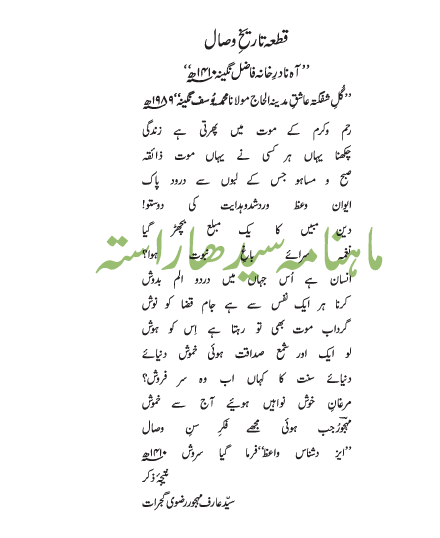 قطعہ تاریخِ وصال
’’آہ نادرِ خانہ فاضل نگینہ ۱۴۱۰ھ‘‘
’’گُلِ شگفتہ عاشقِ مدینہ الحاج مولانا محمد یُوسف نگینہ‘‘ ۱۹۸۹ھ
رحم وکرم کے موت میں پھرتی ہے زندگی
چکھنا یہاں ہر کسی نے یہاں موت ذائقہ
صبح و مساہو جس کے لبوں سے درود پاک
ایوان وعظ وردشدوہدایت کی دوستو!
دین مبیں کا یک مبلغ بچھڑ گیا
نغمہ سرائے باغِ نبوت ہوا؟
ماہنامہ سیدھا راستہ
انسان ہے اُس جہاں میں دردو الم بدوش
کرنا ہر ایک نفس سے ہے جام قضا کو نوش
گرداب موت بھی تو رہتا ہے اِس کو ہوش
لو ایک اور شمع صداقت ہوئی خموش دنیائے
دنیائے سنت کا کہاں اب وہ سر فروش؟
مرغانِ خوش نواہیں ہوئیے آج سے خموش
مہجورؔ جب ہوئی مجھے فکرِ سنِ وصال
’’ایز دشناس واعظ‘‘ فرما گیا سروش ۱۴۱۰ھ
نتیجۂ ذکر
سیّد عارف مہجور رضوی گجرات